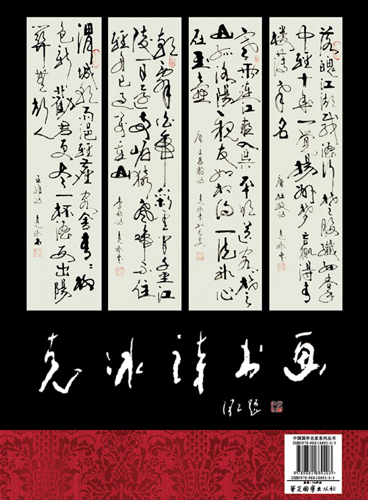 落魄江湖载酒行楚腰纤细掌
中轻十年一觉扬州梦赢得青
楼薄幸名
寒雨连江夜入吴平明送客楚
山孤洛阳亲友如相问一片冰心
在玉壶
朝辞白帝彩云间千里江
陵一日还两岸猿声啼不住
轻舟已过万重山
渭城朝雨浥轻尘客舍青青柳
色新劝君更尽一杯酒西出阳
关无故人
克冰诗书画
中国国学名家系列丛书
华夏国学出版社